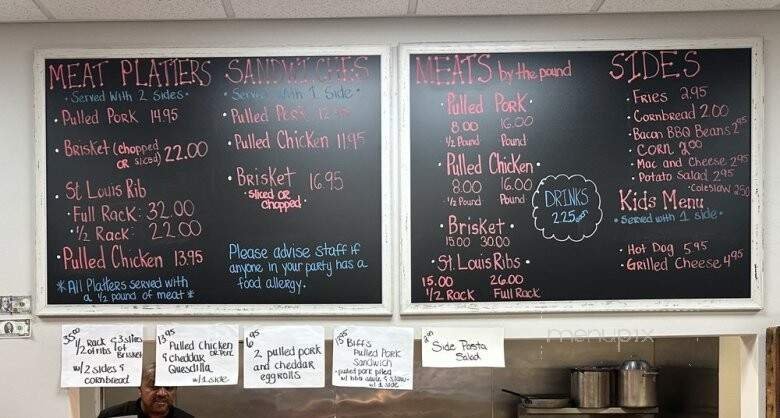 MEAT PLATTERS
• Served With 2 Sides •
• Pulled Pork 14.95
• Brisket (chopped
OR sliced) 22.00
• St Louis Rib
• Full Rack: 32.00
• ½ Rack: 22.00
• Pulled Chicken 13.95
*All Platters served with
a ½ pound of meat*
SANDWICHES
• Served With 1 Side •
• Pulled Pork
• Pulled Chicken 11.95
• Brisket 16.95
• Sliced OR
Chopped •
Please advise staff if
anyone in your party has a
food allergy.
MEATS by the pound
• Pulled Pork •
8.00 16.00
½ Pound Pound
• Pulled Chicken •
8.00 16.00
½ Pound Pound
• Brisket •
15.00 30.00
• St. Louis Ribs •
15.00 26.00
½ Rack Full Rack
DRINKS
2.25
SIDES
• Fries 2.95
• Cornbread 2.00
• Bacon BBQ Beans 2.95
• CORN 2.00
• Mac and Cheese 2.95
• Potato Salad 2.95
• Coleslaw 2.50
Kids Menu
• Served with 1 side •
• Hot Dog 5.95
• Grilled Cheese 4.95
35.00
½ Rack & 3 slices
of ribs of Brisket
w/ 2 sides &
cornbread
13.95
Pulled Chicken OR Pork
& Cheddar
Quesdilla
w/ 1 side
6.95
2 pulled pork
and cheddar
eggrolls
Biff's
Pulled Pork
Sandwich
• pulled pork piled
w/ bbq sauce & slaw •
w/ 1 side
Side Pasta
Salad
menupix